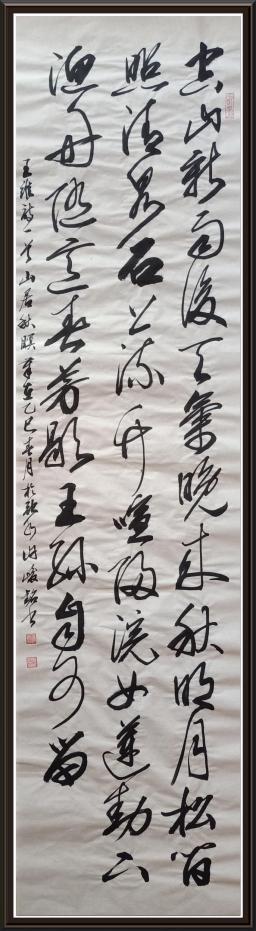 空山新雨後天氣晚來秋明月松間
照清泉石上流竹喧歸浣女蓮動下
漁舟隨意春芳歇王孫自可留
王維詩一首山居秋暝 乙巳春月於